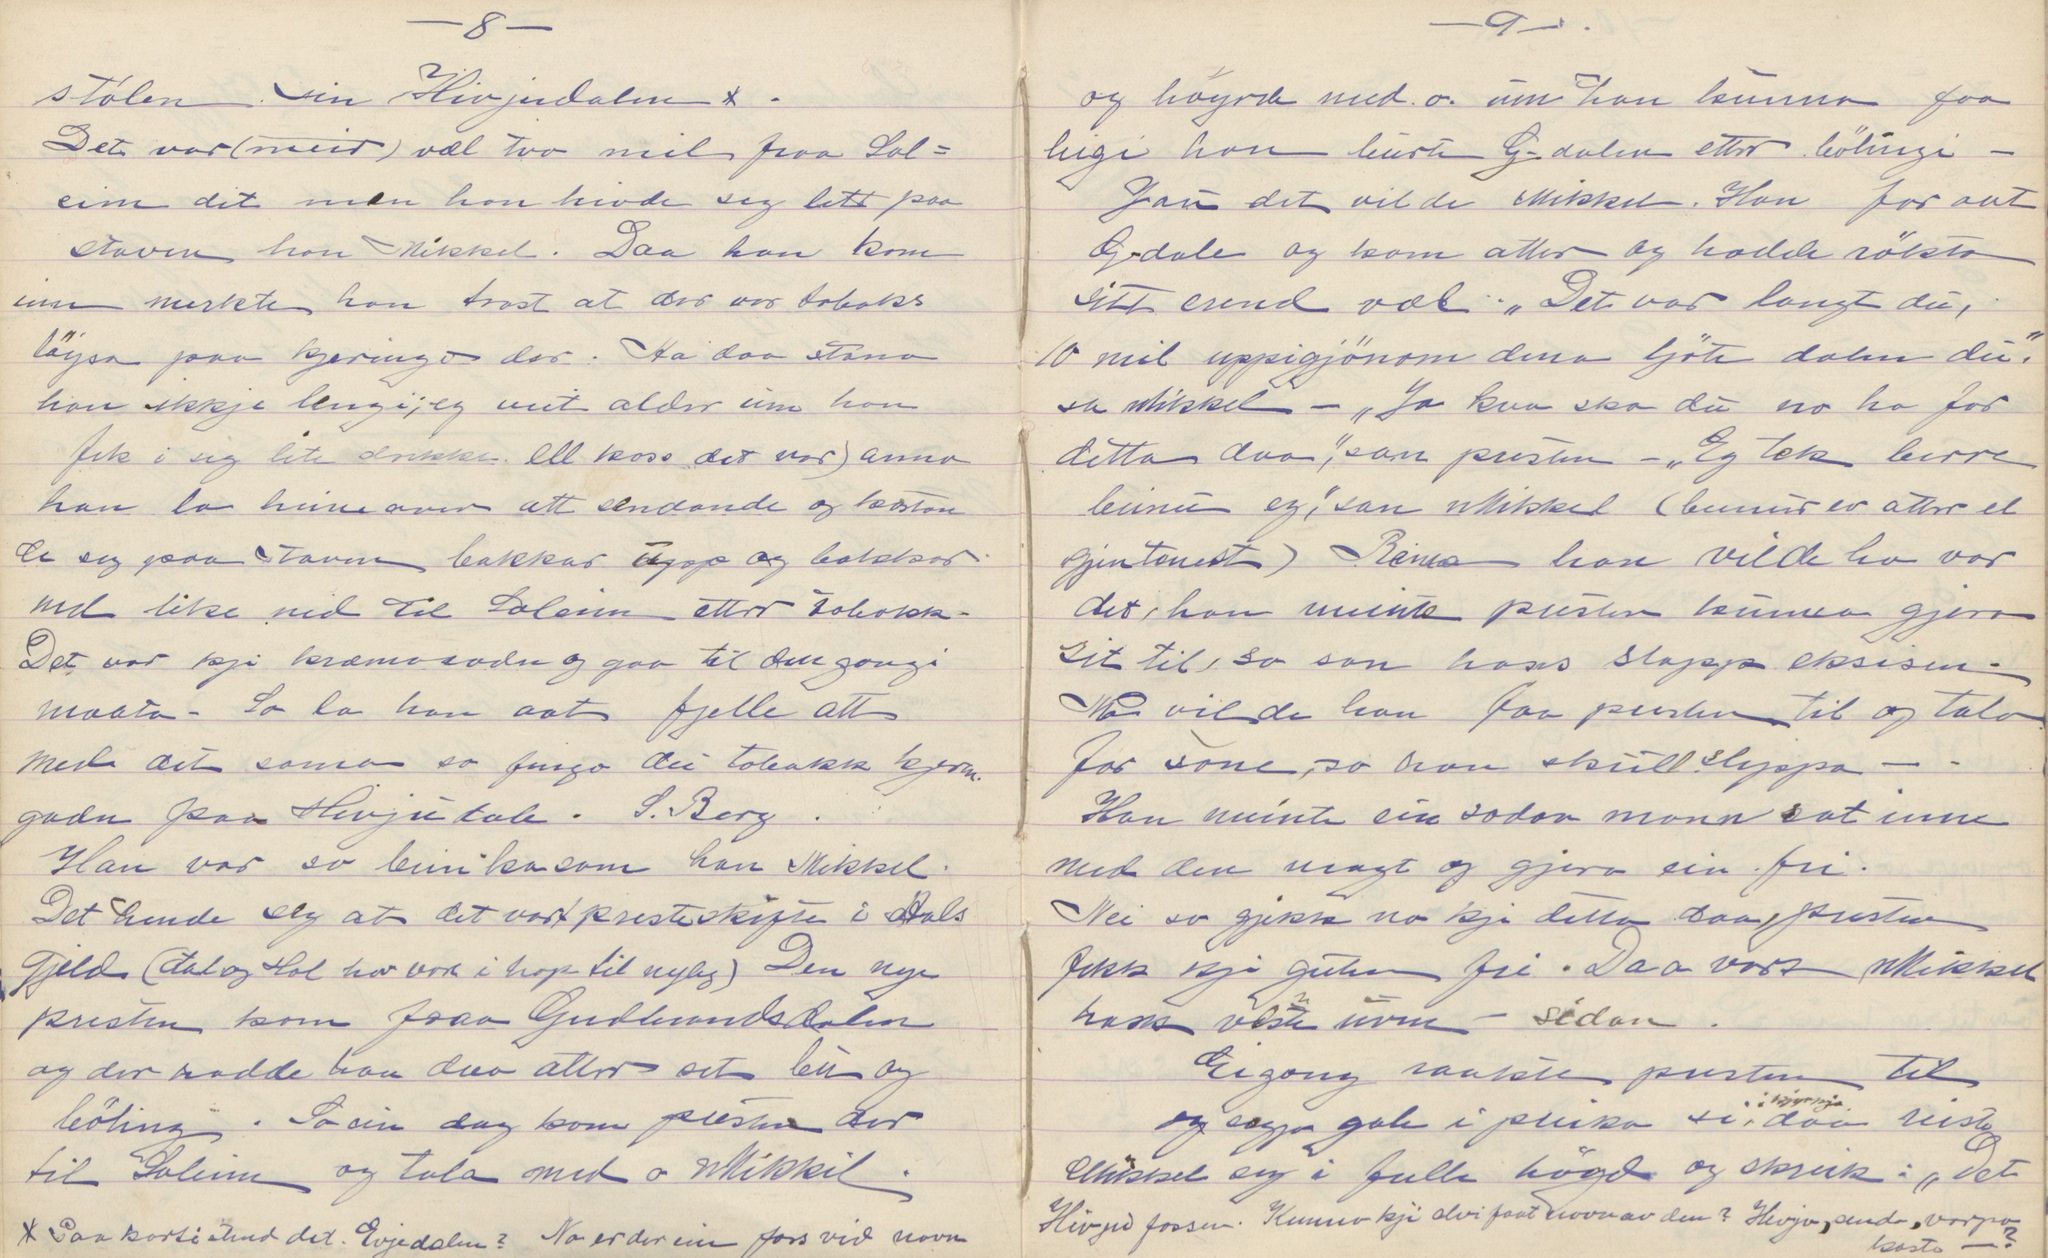 — 8 —
stölen sin Hivjudalen *.
Det var (meir) væl tvo mil fraa Sol=
eim dit men han hivde seg lett paa
staven han Mikkel. Daa han kom
inn merkte han trast at der var tobaks
löysa paa kjeringo der. Ha daa stana
han ikkje lengi; eg veit alder um han
fek i seg lite drikke ell koss det var) anna
han la heimeaver att sendande og kastan
de seg paa staven bakkar upp og bakkar
ned like ned til Soleim etter tobakk-
Det var kji kræmarado og gaa til den gongi
maata - So la han aat fjelle att
med det sama so fingo dei tobakk kjerin.
gadn paa Hivjudale. S. Berg.
Han var so beinkasam han Mikkel.
Det hende seg at det vart presteskifte i Aals
gjeld (Aal og Hol har vore i hop til nyleg) Den nye
presten kom fraa Gudbrandsdalen
og der hadde han daa atter set bu og
böling. So ein dag kom presten der
til Soleim og tala med o Mikkil.
* Saa korti stend det. Evjedalen? No er der ein foss vid navn
— 9 —.
og höyrde med. o. um han kunna faa
leigi han burte G-dalen etter bölingi —
Jau det vilde Mikkel. Han for aat
G-dale og kom atter og hadde rökta
sitt erend væl. „Det var langt du,
10 mil uppigjönom dena ljöte dalen du",
sa Mikkel — „Ja kva ska du no ha for
detta daa", san presten — „Eg tek berre
beinu eg", san Mikkel (beinur er atter el
gjentenest) han vilde ha var
det, han meinte presten kunna gjera
sit til, so son hans slapp eksisen.
No vilde han faa presten til og tala
for sone, so han skull sleppa —
Han meinte ein sodan mann sat inne
med den magt og gjera ein fri.
Nei so gjekk no kji detta daa, presten
fekk kji guten fri. Daa vart Mikkel
hass uven — sidan.
Eigong raakte presten til
og segja gale i preika si, i kjyrkja daa reiste
Mikkel seg i fulle högd og skreik: „Det
Hivju fossen. Kunna kji elvi faat navn av den? Hivja, senda, varpa
kasta —?